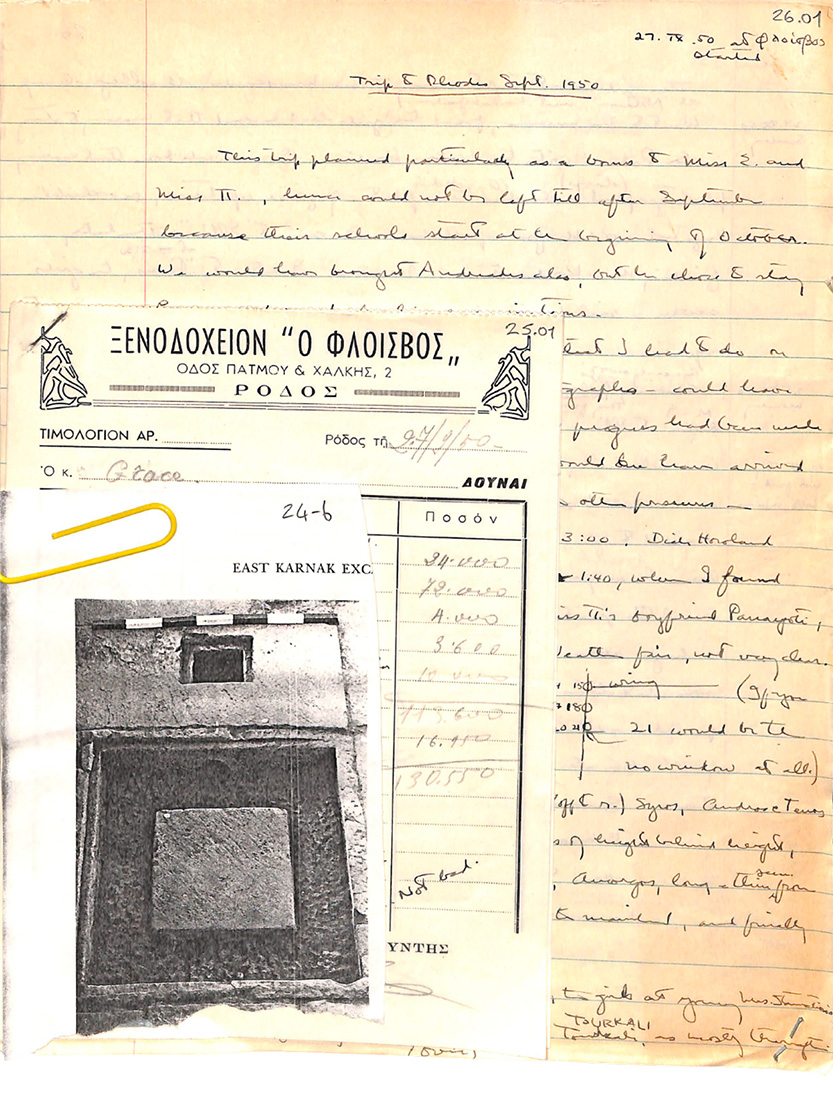 26.01
27.IX.50 at Φλοίσβος
started
Trip to Rhodes Sept. 1950
This trip planned particularly as a bonus to Miss E. and
Miss Π., hence could not be left till after September
because their schools start at the beginning of October.
We would have brought Andreades also, but he chose to stay
25.01
ΞΕΝΟΔΟΧΕΙΟΝ "Ο ΦΛΟΙΣΒΟΣ„
ΟΔΟΣ ΠΑΤΜΟΥ & ΧΑΛΚΗΣ, 2
ΡΟΔΟΣ
ΤΙΜΟΛΟΓΙΟΝ ΑΡ.
Ρόδος τῇ 27/9/50
Ὁ κ. Grace.
ΔΟΥΝΑΙ
Ποσόν
24.000
72.000
4.000
3.600
113.600
16.950
130.550
Not bad.
ΥΝΤΗΣ
24-6
EAST KARNAK EXC
that I had to do on
graphs – could have
progress had been made
would have arrived
other pressures –
3:00. Dick Howland
1:40, when I found
Miss Π's boyfriend Panayoti,
weather fair, not very clear.
150 wing (If you
180
21 would be the
no window at all.)
off to r.) Syros, Andros & Tenos
of height behind height,
Amorgos, long & thin from
seen
the mainland, and finally
the girls at young
TOURKALI
Tourkali, as mostly